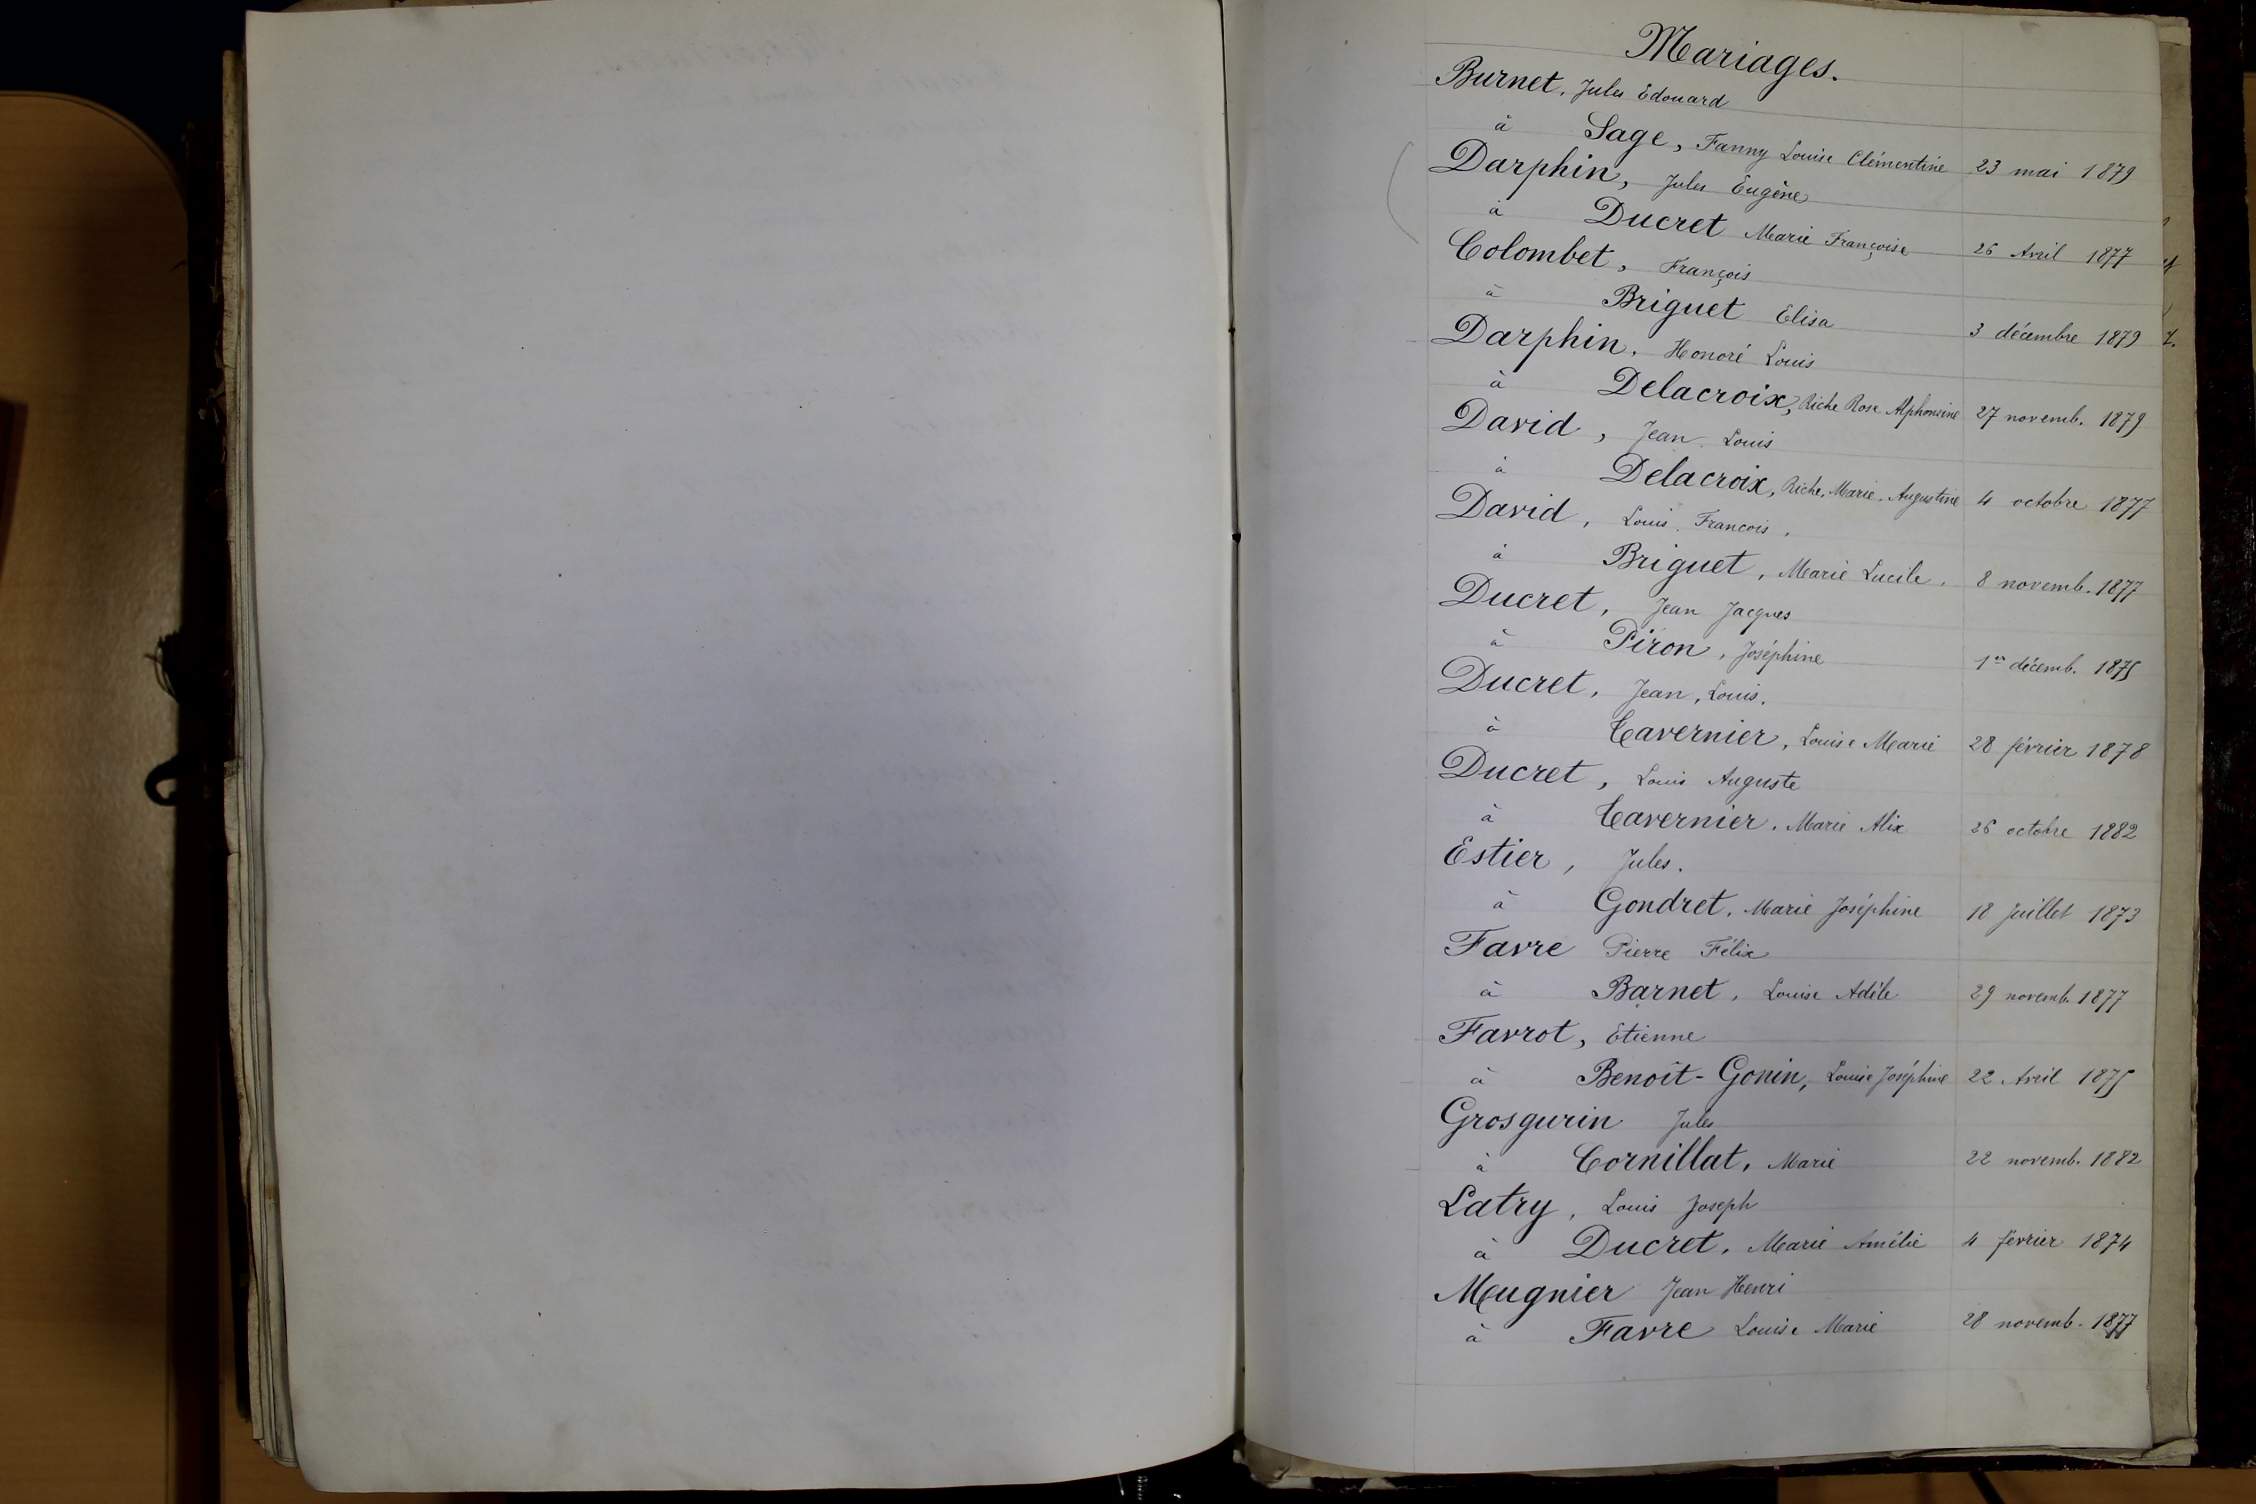 Mariages.
Burnet, Jules Edouard
à Sage, Fanny Louise Clémentine 23 mai 1879
Darphin, Jules Eugène
à Ducret Marie Françoise 26 Avril 1877
Colombet, François
à Briguet Elisa 3 décembre 1879
Darphin, Honoré Louis
à Delacroix, Riche Rose Alphonsine 27 novemb. 1879
David, Jean Louis
à Delacroix, Riche, Marie, Augustine 4 octobre 1877
David, Louis François.
à Briguet, Marie Lucile. 8 novemb. 1877
Ducret, Jean Jacques
à Piron, Joséphine 1er décemb. 1875
Ducret, Jean, Louis.
à Tavernier, Louise Marie 28 février 1878
Ducret, Louis Auguste
à Tavernier, Marie Alix 26 octobre 1882
Estier, Jules.
à Gondret, Marie Joséphine 18 Juillet 1873
Favre Pierre Félix
à Barnet, Louise Adèle 29 novemb. 1877
Favrot, Etienne
à Benoît-Gonin, Louise Joséphine 22 Avril 1875
Grosgurin Jules
à Cornillat, Marie 22 novemb. 1882
Latry, Louis Joseph
à Ducret, Marie Amélie 4 février 1874
Mugnier Jean Henri
à Favre Louise Marie 28 novemb. 1877